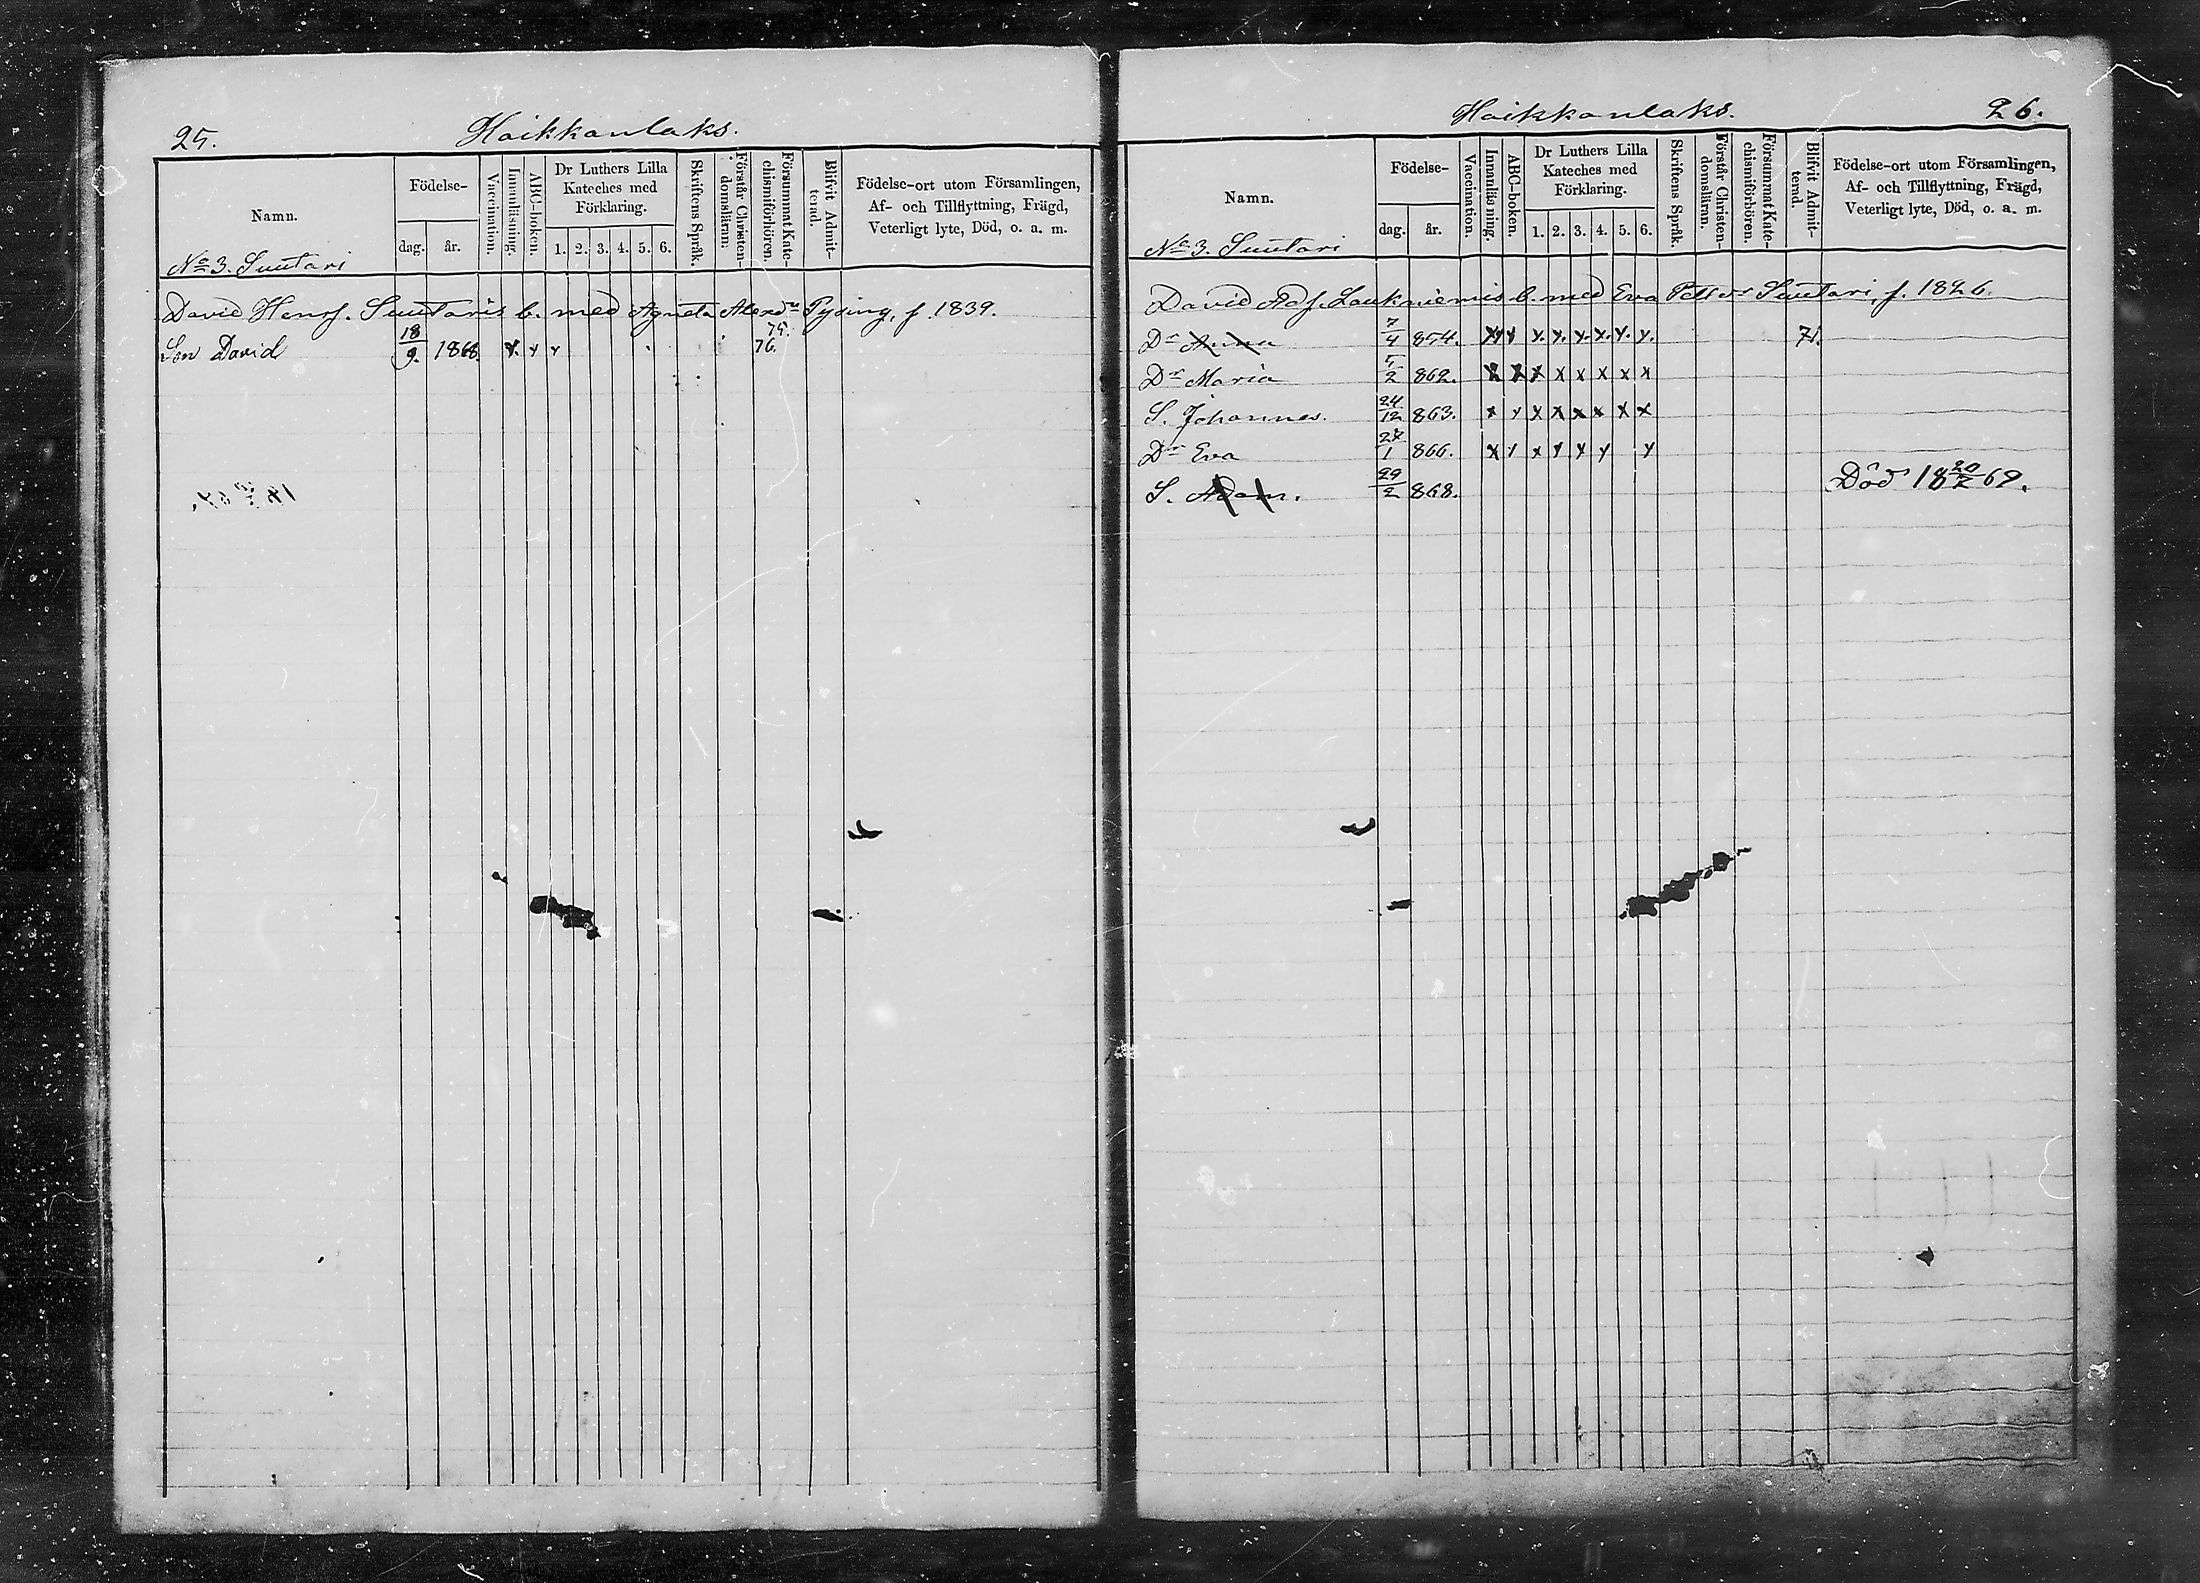 25.
Haikkanlaks.
Namn.
Födelse-
dag.
år.
Vaccination.
Innanläsning.
ABC-boken.
Dr Luthers Lilla Kateches med Förklaring.
1. 2. 3. 4. 5. 6.
Skriftens Språk.
Förstår Christen-domsläran.
Försummat Kate-chismiförhören.
Blifvit Admit-terad.
Födelse-ort utom Församlingen,
Af- och Tillflyttning, Frägd,
Veterligt lyte, Död, o. a. m.
No 3. Suutari
David Henrs. Suutaris b. med Agneta Alexdr Pysing, f. 1839.
Son David 18/9. 1868. x. x x 75. 76.
26.
Haikkanlaks.
Namn.
Födelse-
dag.
år.
Vaccination.
Innanläsning.
ABC-boken.
Dr Luthers Lilla Kateches med Förklaring.
1. 2. 3. 4. 5. 6.
Skriftens Språk.
Förstår Christen-domsläran.
Försummat Kate-chismiförhören.
Blifvit Admit-terad.
Födelse-ort utom Församlingen,
Af- och Tillflyttning, Frägd,
Veterligt lyte, Död, o. a. m.
No 3. Suutari
David Ads. Laukaiemis b. med Eva Pettsdr Suutari, f. 1826.
Dr Anna 7/4 854. x x x. x. x. x. x. x. 71.
Dr Maria 5/2 862. x x x x x x x x
S. Johannes. 24/12 863. x x x x x x x x
Dr Eva 27/1 866. x x x x x x x
S. Adam. 29/2 868. Död 18 20/2 69.